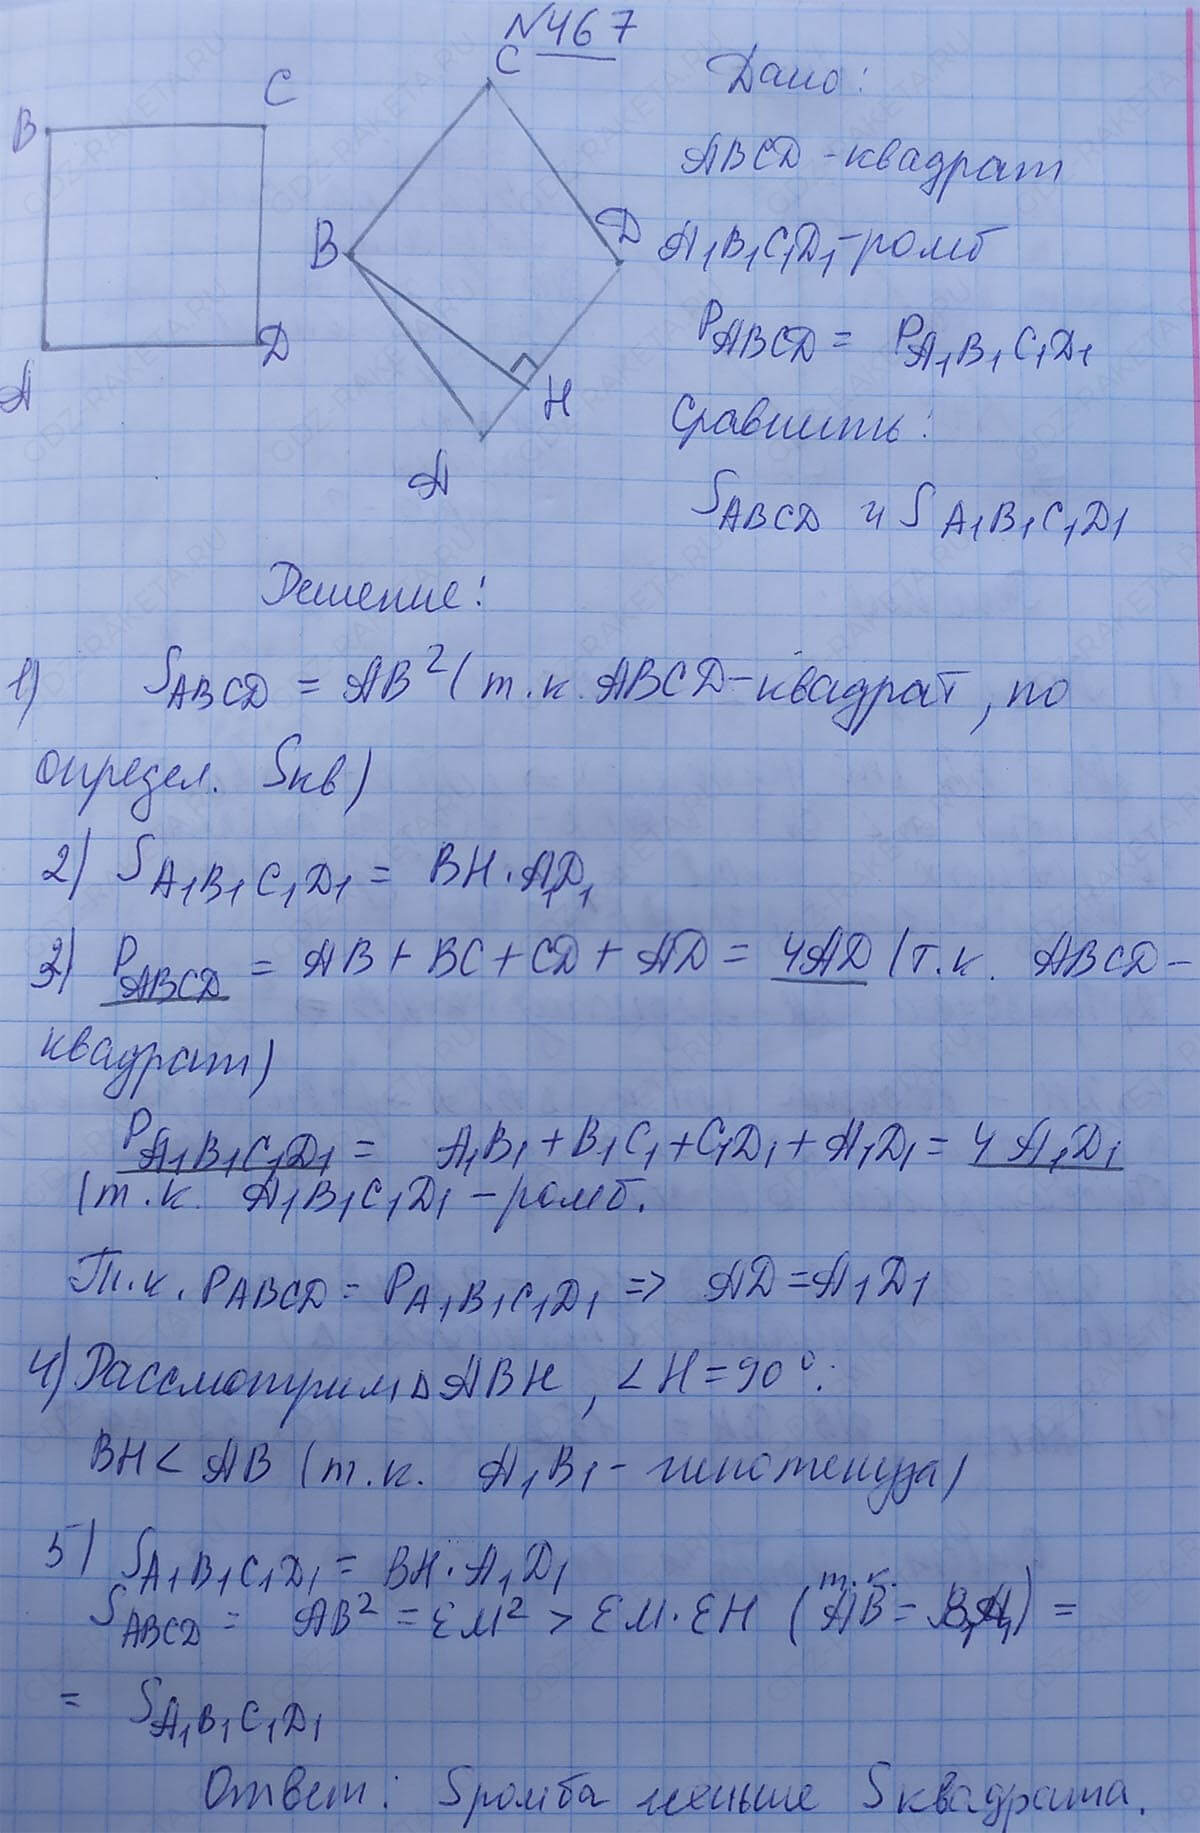 N467
C
B
A
D
C
B
D
H
A
Дано:
ABCD - квадрат
A₁B₁C₁D₁ - ромб
P_ABCD = P_A₁B₁C₁D₁
Сравнить:
S_ABCD и S_A₁B₁C₁D₁
Решение:
1) S_ABCD = AB² (т.к. ABCD - квадрат, по
определ. Sкв)
2) S_A₁B₁C₁D₁ = BH · A₁D₁
3) P_ABCD = AB + BC + CD + AD = 4AD (т.к. ABCD -
квадрат)
P_A₁B₁C₁D₁ = A₁B₁ + B₁C₁ + C₁D₁ + A₁D₁ = 4A₁D₁
(т.к. A₁B₁C₁D₁ - ромб.
Т.к. P_ABCD = P_A₁B₁C₁D₁ => AD = A₁D₁
4) Рассмотрим Δ ABH, ∠H = 90°:
BH < AB (т.к. A₁B₁ - гипотенуза)
5) S_A₁B₁C₁D₁ = BH · A₁D₁
S_ABCD = AB² = EM² > EM · EH (т.к. AB = ) =
= S_A₁B₁C₁D₁
Ответ: Sромба меньше Sквадрата.